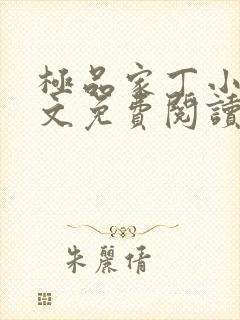 極品家丁小
文免費閱讀
朱麗倩